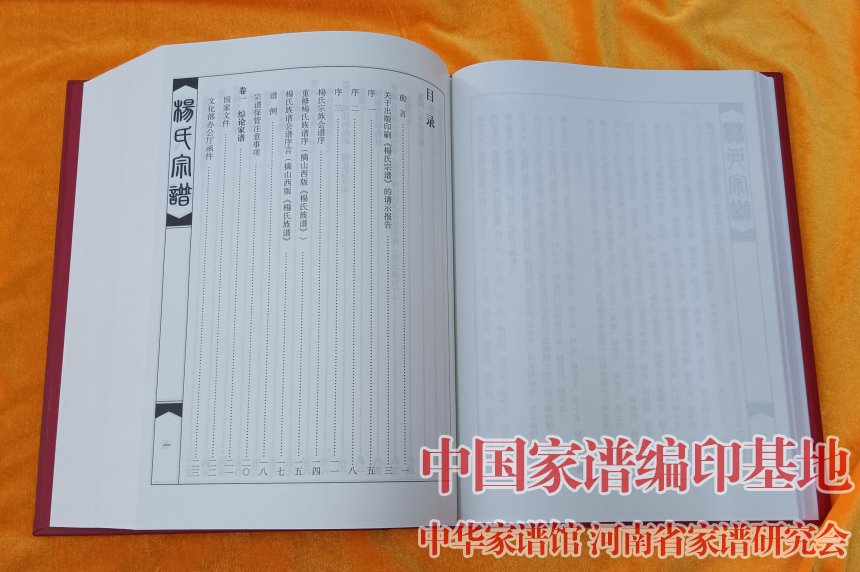 目录
前言……一
关于出版印刷《楊氏宗谱》的请示报告……三
序一……五
序二……八
序三……一一
楊氏宗族会谱序……一四
重修楊氏族谱序(摘山西版《楊氏族谱》)……一五
楊氏族谱会谱序言(摘山西版《楊氏族谱》)……一七
谱例……一八
宗谱保管注意事项……二〇
卷一 综论家谱……二一
国家文件……二二
文化部办公厅函件……二三
楊氏宗譜
一
中国家谱编印基地
中华家谱馆 河南省家谱研究会